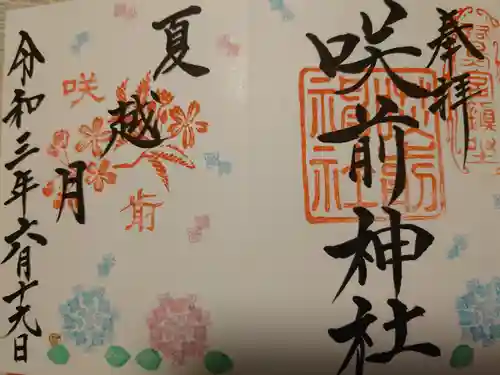 奉拝
咲前神社
夏越月
咲前
令和三年六月十九日